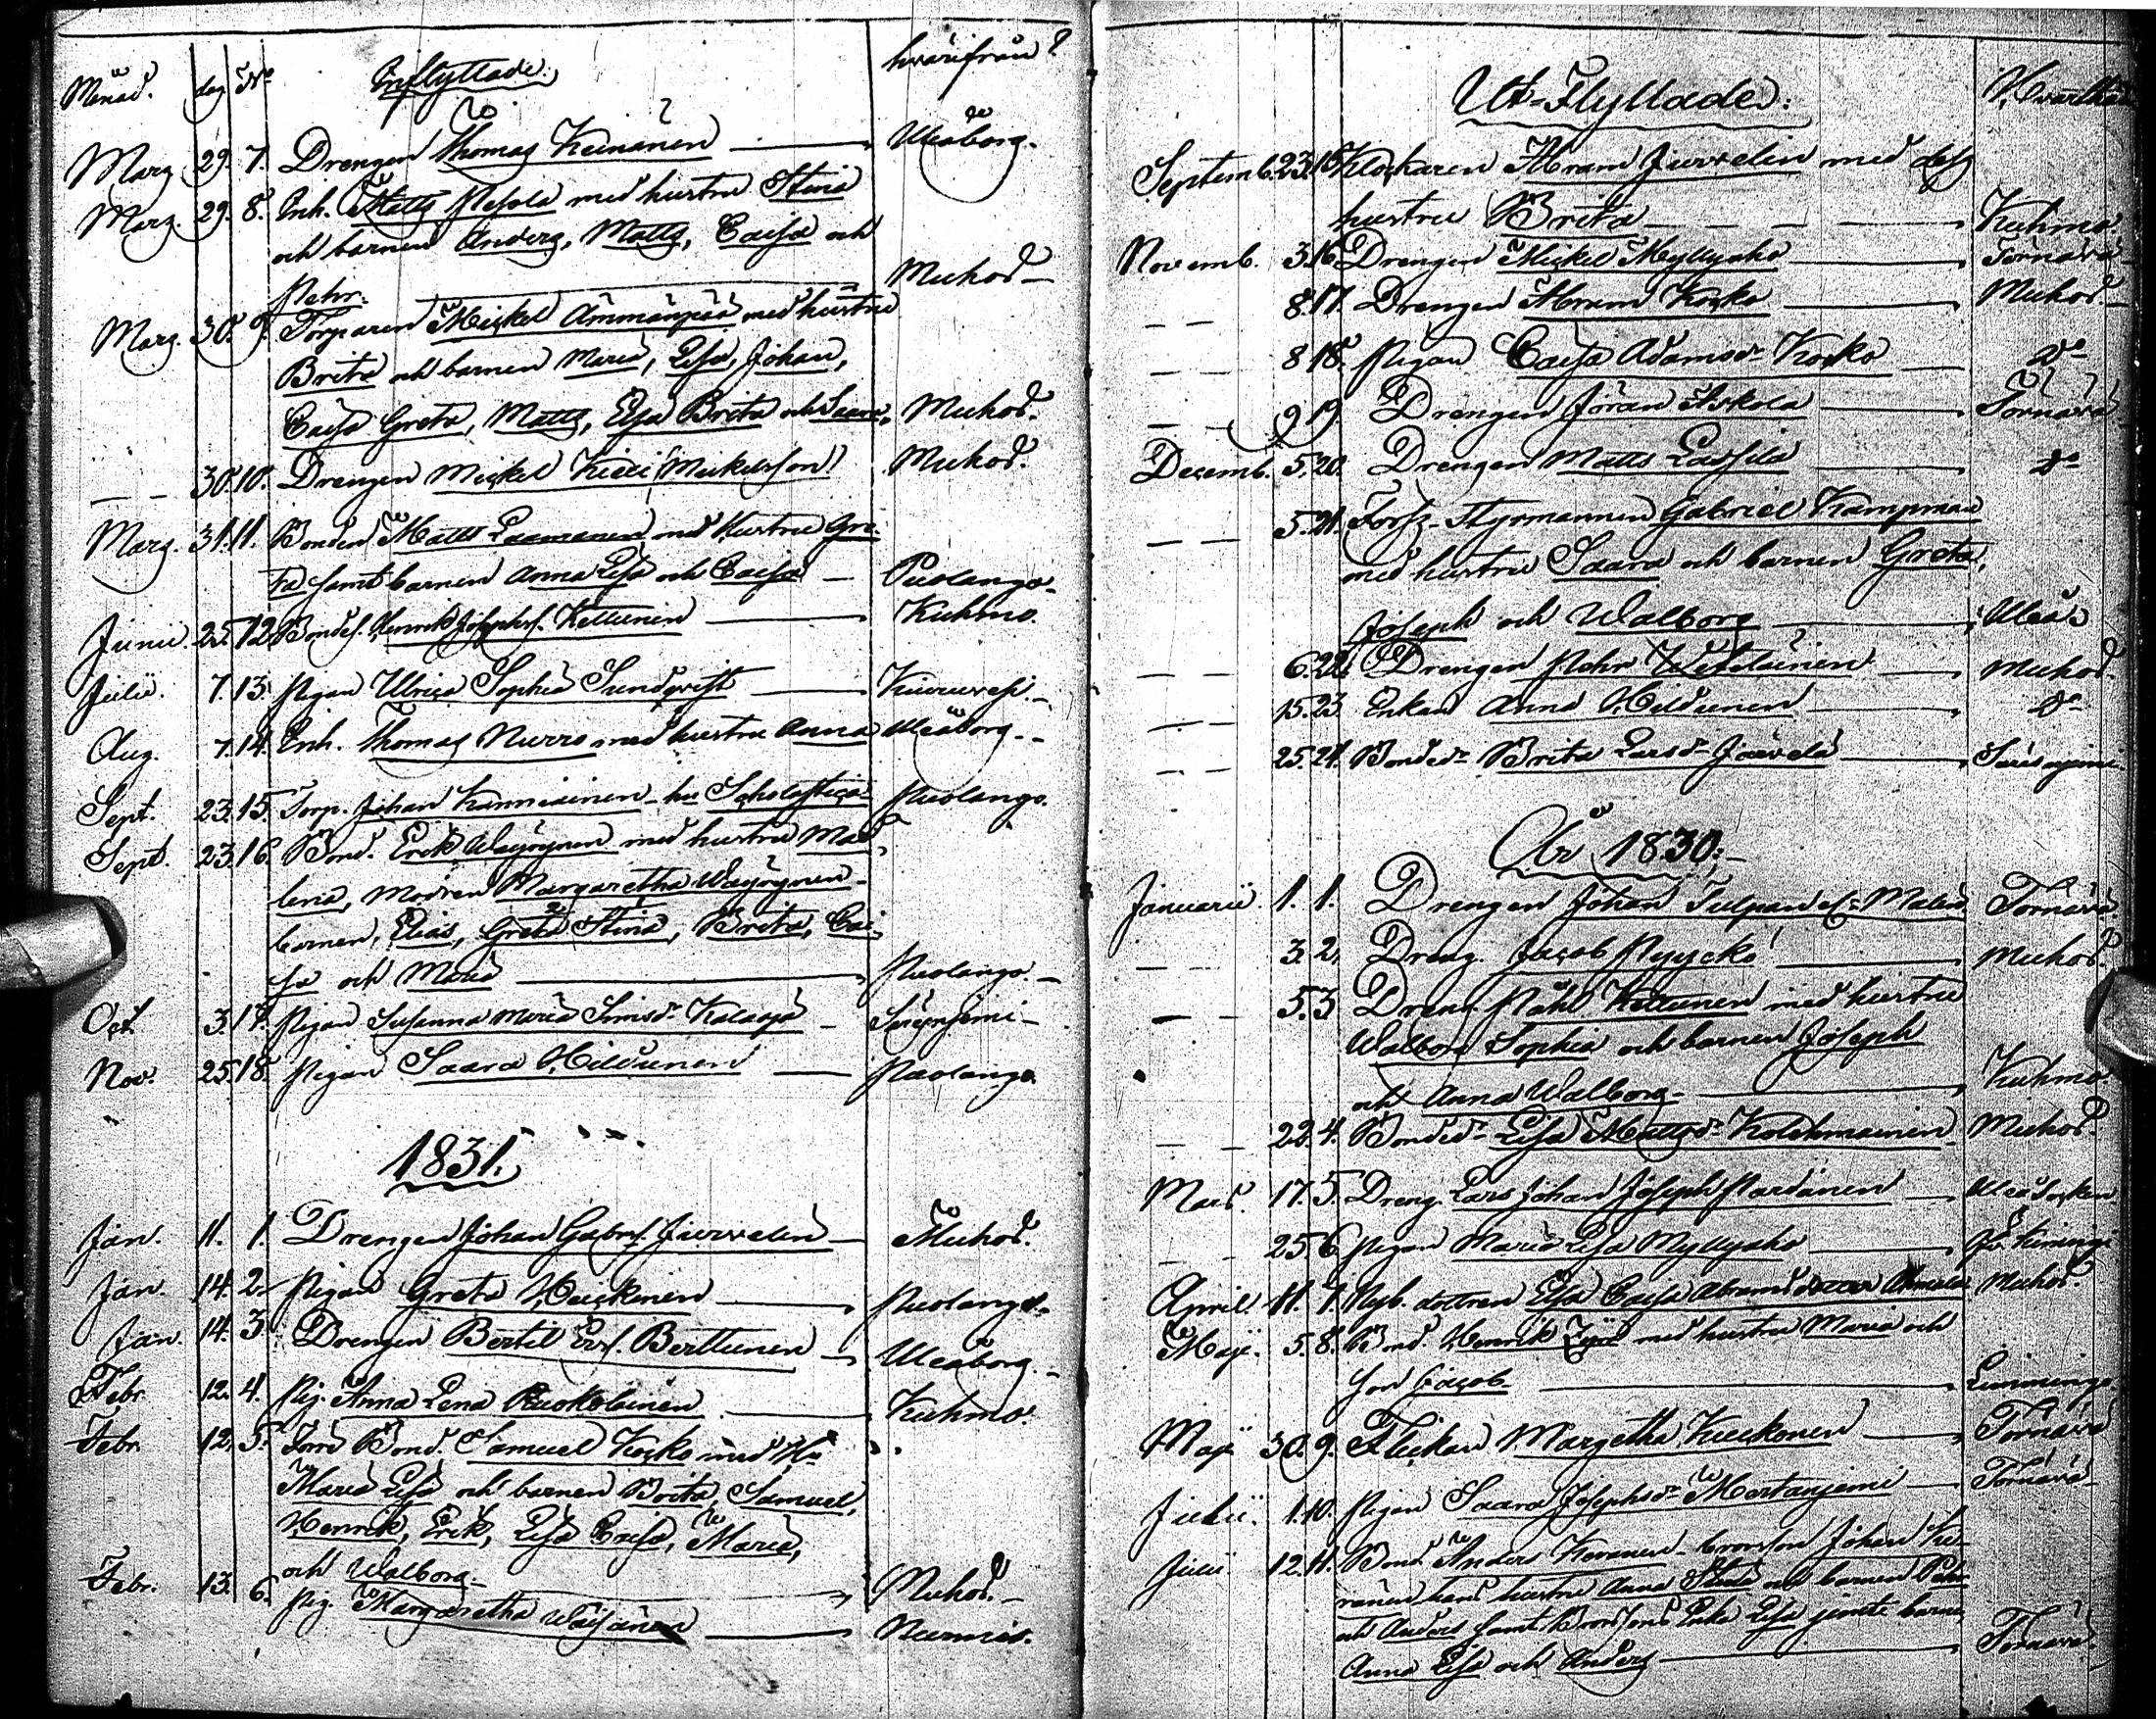 Månad. dag No Inflyttade. hvarifrån?
Marz 29. 7. Drengen Thomas Keinänen Uleåborg.
Marz. 29. 8. Inh. Matts Pesola med hustru Stina
och barnen Anders, Matts, Caisa och
Pehr. Muhos
Marz. 30. 9. Torparen Mickel Ämmänpää med hustru
Brita och barnen Maria, Lisa, Johan,
Caisa Greta, Matts, Elsa Brita och Saara, Muhos.
30. 10. Drengen Mickel Kieli Mickelsson Muhos.
Marz. 31. 11. Bonden Matts Laamanen med Hustru Gre-
ta samt barnen Anna Lisa och Caisa Puolango
Junii. 25. 12. Bondes. Henrik Josephs. Kettunen Kuhmo.
Julii. 7. 13. Pigan Ulrica Sophia Sundqvist Kiuruvesi.
Aug. 7. 14. Inh. Thomas Nurro med hustru Anna Uleåborg.
Sept. 23. 15. Torp. Johan Kanniainen hu Scholastica Puolango.
Sept. 23. 16. Bond. Erik Wäyrynen med hustru Mad
lena, modren Margaretha Wäyrynen
barnen, Elias, Greta Stina, Brita, Cai-
sa och Maria Puolango.
Oct. 3. 17. Pigan Susanna Maria Simsdr Kalaoja Säräisniemi
Nov. 25. 18. Pigan Saara Hildunen Puolango
1831.
Jan. 11. 1. Drengen Johan Gabrs. Juvvelin Muhos.
Jan. 14. 2. Pigan Greta Heickinen Puolango.
Jan. 14. 3. Drengen Bertil Ers. Berttunen Uleåborg.
Febr. 12. 4. Pig. Anna Lena Ruokolainen Kuhmo.
Febr. 12. 5. Förra Bond. Samuel Kocko med Hu
Maria Lisa och barnen Brita, Samuel,
Henrik, Erik, Lisa Caisa, Maria,
och Walborg. Muhos.
Febr. 13. 6. Pig. Margaretha Wäisänen Nurmis.
Ut-Flyttade: Hvarthän
Septemb. 23. 15. Klockaren Abram Juvvelin med dess
hustru Brita Kuhmo.
Novemb. 3. 16. Drengen Mickel Myllyaho Törnävä
8. 17. Drengen Abram Kocko Muhos
8. 18. Pigan Caisa Adamsdr Kocko do
9. 19. Drengen Jöran Askola Törnävä
Decemb. 5. 20. Drengen Matts Lassila do
5. 21. Forss-Styrmannen Gabriel Kampman
med hustru Saara och barnen Greta,
Joseph och Walborg Uleå
6. 22. Drengen Pehr Wetelainen Muhos.
15. 23. Enkan Anna Hildunen do
25. 24. Bondedr Brita Larsdr Jowela Säräisniemi
År 1830.
Januarii. 1. 1. Drengen Johan Tulpan Törnävä.
3. 2. Dreng. Jacob Pyycko Muhos.
5. 3. Dreng. Påhl Kettunen med hustru
Walborg Sophia och barnen Joseph
och Anna Walborg Kuhmo.
22. 4. Bondedr Lisa Mattsdr Kolehmainen Muhos.
Mars. 17. 5. Dreng. Lars Johan Joseph Pardanen Uleå Socken
25. 6. Pigan Maria Lisa Myllyaho
April 11. 7. Nyb. dottren Elsa Caisa Abrams dotter Muhos.
Maji. 5. 8. Bond. Henrik med hustru Maria och
son Jacob Limmingo.
Maji 30. 9. Flickan Margetha Kuckonen Törnävä
Julii. 1. 10. Pigan Saara Josephsdr Mertaniemi Törnävä
Julii 12. 11. Bond. Anders Keranen brorson Johan Ke-
ränen hans hustru Anna Stina och barnen Pehr
och Anders samt Brorsons Enka Lisa jemte barnen
Anna Lisa och Anders Törnävä.